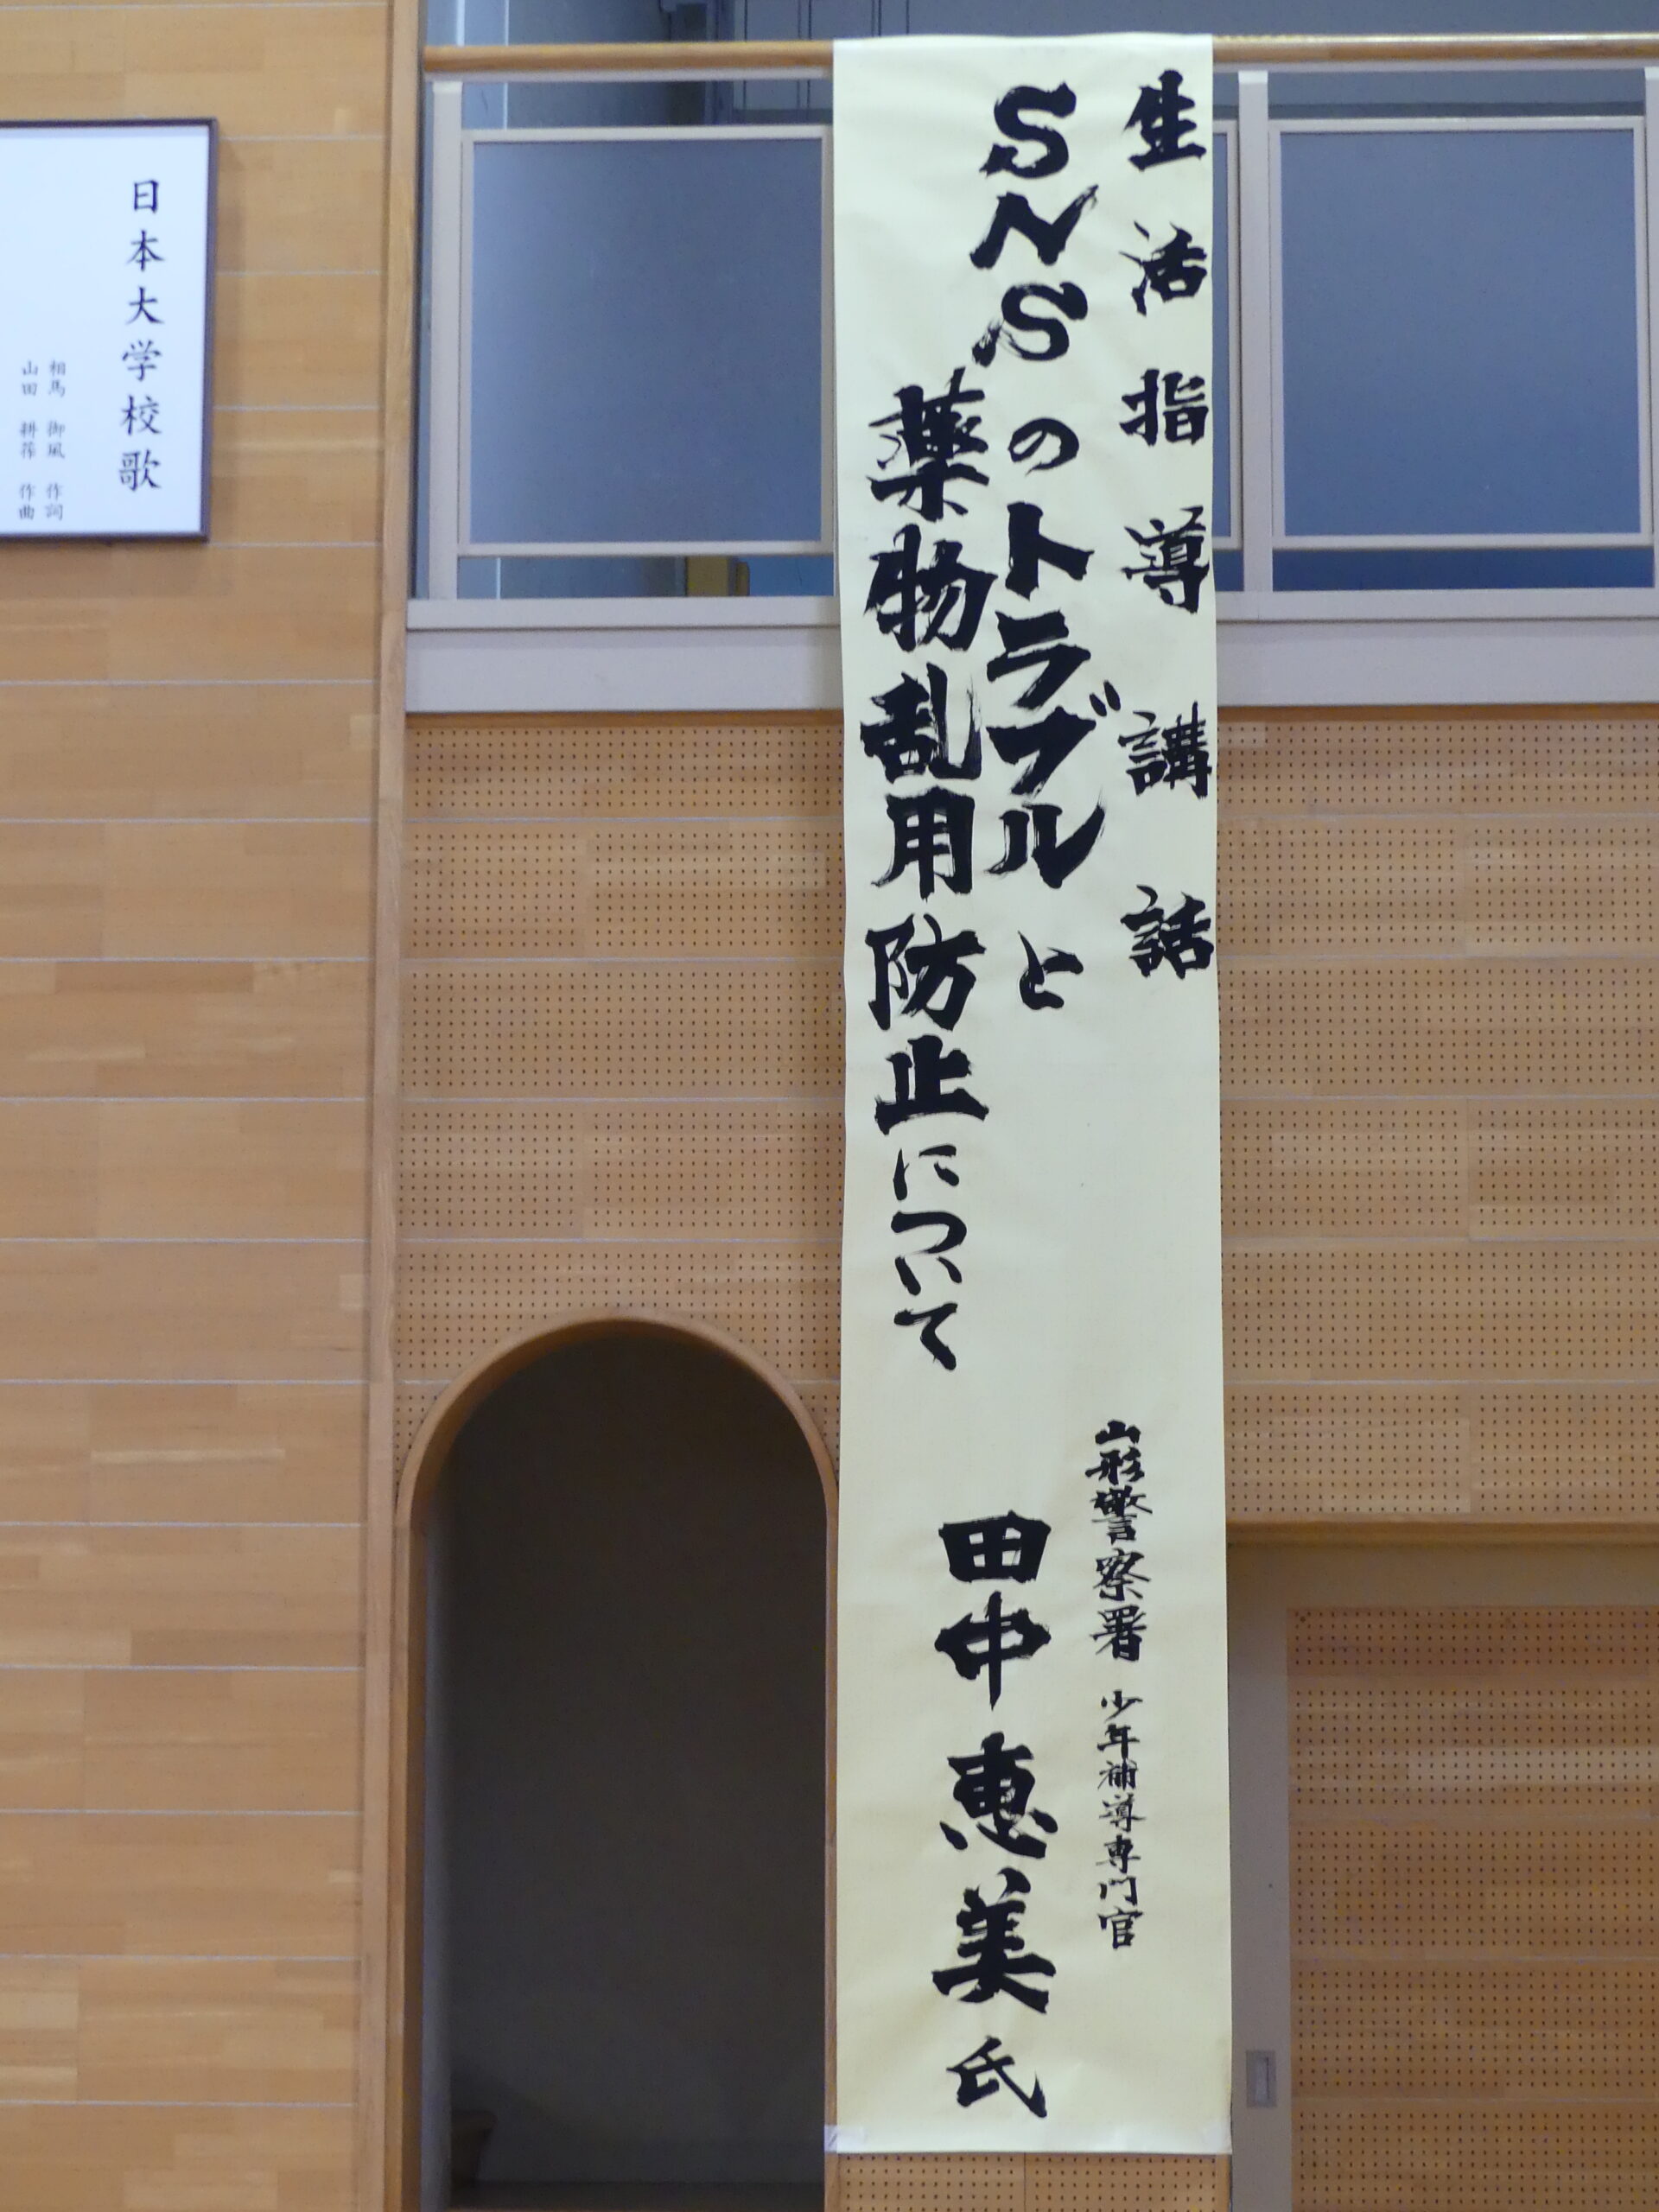 生活指導講話
SNSのトラブルと
薬物乱用防止について
山形警察署 少年補導専門官
田中惠美氏
日本大学校歌
相馬 御風 作詞
山田 耕筰 作曲